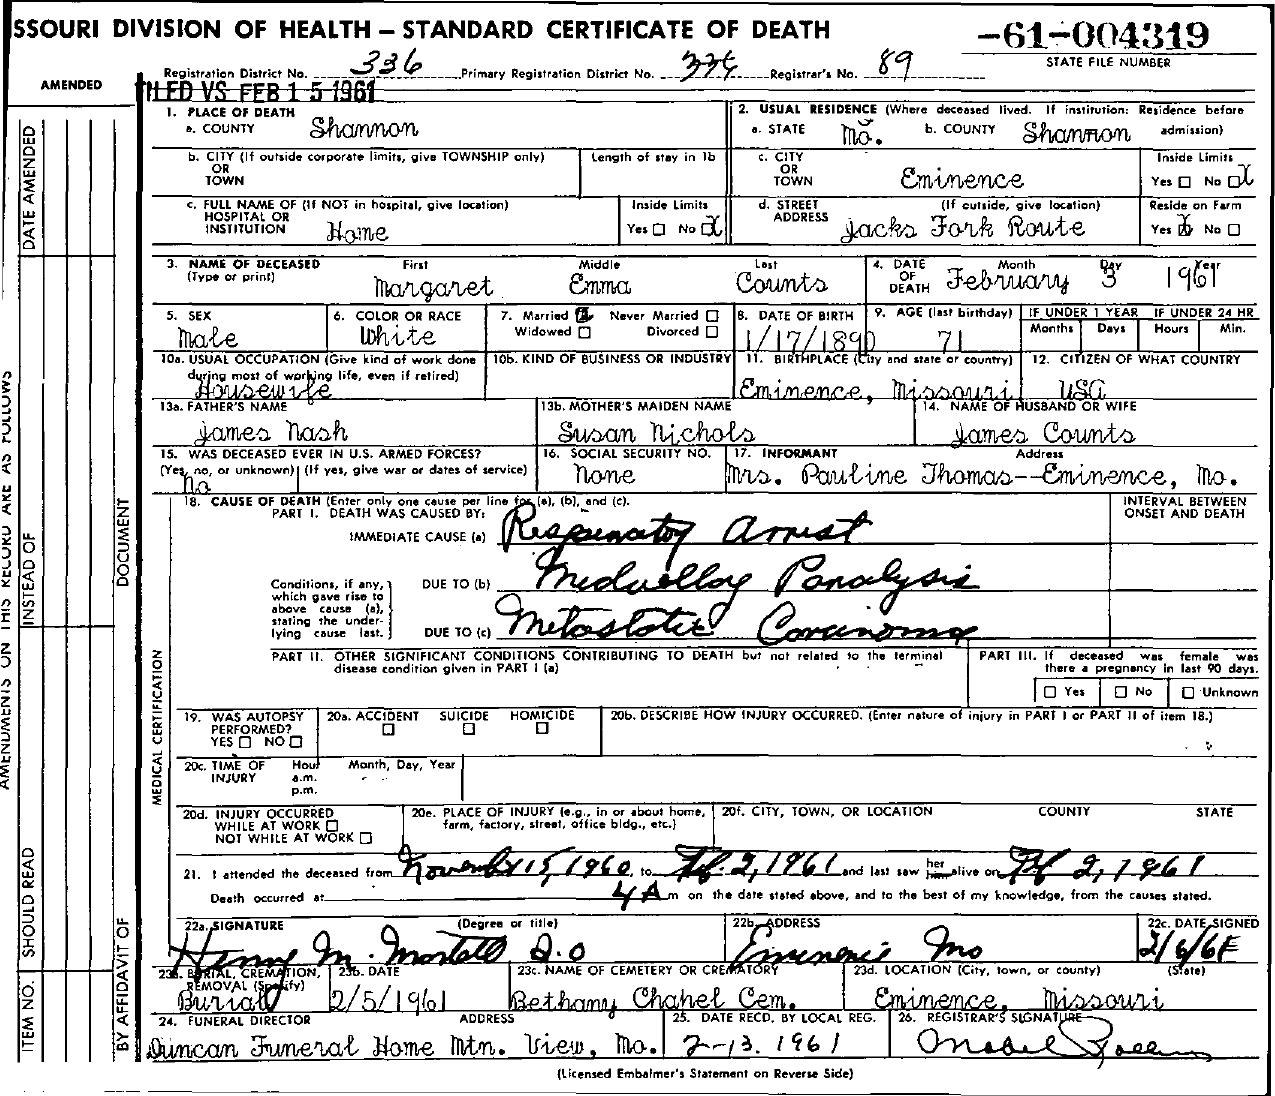 SSOURI DIVISION OF HEALTH — STANDARD CERTIFICATE OF DEATH
-61-004319
STATE FILE NUMBER
Registration District No. 336 Primary Registration District No. 336 Registrar's No. 89
AMENDED
ILED VS FEB 15 1961
1. PLACE OF DEATH
a. COUNTY Shannon
2. USUAL RESIDENCE (Where deceased lived. If institution: Residence before admission)
a. STATE Mo. b. COUNTY Shannon
b. CITY (If outside corporate limits, give TOWNSHIP only) OR TOWN
Length of stay in 1b
c. CITY OR TOWN Eminence
Inside Limits
Yes ☐ No ☒
c. FULL NAME OF (If NOT in hospital, give location) HOSPITAL OR INSTITUTION Home
Inside Limits
Yes ☐ No ☒
d. STREET ADDRESS (If outside, give location) Jacks Fork Route
Reside on Farm
Yes ☒ No ☐
3. NAME OF DECEASED (Type or print)
First Middle Last
Margaret Emma Counts
4. DATE OF DEATH Month Day Year
February 3 1961
5. SEX
Male
6. COLOR OR RACE
White
7. Married ☒ Never Married ☐
Widowed ☐ Divorced ☐
8. DATE OF BIRTH
1/17/1890
9. AGE (last birthday)
71
IF UNDER 1 YEAR IF UNDER 24 HR
Months Days Hours Min.
10a. USUAL OCCUPATION (Give kind of work done during most of working life, even if retired)
Housewife
10b. KIND OF BUSINESS OR INDUSTRY
11. BIRTHPLACE (City and state or country)
Eminence, Missouri
12. CITIZEN OF WHAT COUNTRY
USA
13a. FATHER'S NAME
James Nash
13b. MOTHER'S MAIDEN NAME
Susan Nichols
14. NAME OF HUSBAND OR WIFE
James Counts
15. WAS DECEASED EVER IN U.S. ARMED FORCES?
(Yes, no, or unknown) (If yes, give war or dates of service)
No
16. SOCIAL SECURITY NO.
None
17. INFORMANT Address
Mrs. Pauline Thomas--Eminence, Mo.
18. CAUSE OF DEATH (Enter only one cause per line for (a), (b), and (c).
INTERVAL BETWEEN ONSET AND DEATH
PART I. DEATH WAS CAUSED BY:
IMMEDIATE CAUSE (a) Respiratory Arrest
Conditions, if any, which gave rise to above cause (a), stating the underlying cause last.
DUE TO (b) Medullary Paralysis
DUE TO (c) Metastatic Carcinoma
PART II. OTHER SIGNIFICANT CONDITIONS CONTRIBUTING TO DEATH but not related to the terminal disease condition given in PART I (a)
PART III. If deceased was female was there a pregnancy in last 90 days.
☐ Yes ☐ No ☐ Unknown
19. WAS AUTOPSY PERFORMED?
YES ☐ NO ☐
20a. ACCIDENT SUICIDE HOMICIDE
☐ ☐ ☐
20b. DESCRIBE HOW INJURY OCCURRED. (Enter nature of injury in PART I or PART II of item 18.)
20c. TIME OF INJURY Hour a.m. p.m. Month, Day, Year
20d. INJURY OCCURRED
WHILE AT WORK ☐
NOT WHILE AT WORK ☐
20e. PLACE OF INJURY (e.g., in or about home, farm, factory, street, office bldg., etc.)
20f. CITY, TOWN, OR LOCATION COUNTY STATE
21. I attended the deceased from November 15, 1960, to Feb. 2, 1961 and last saw her him alive on Feb 2, 1961
Death occurred at 4 A m on the date stated above, and to the best of my knowledge, from the causes stated.
22a. SIGNATURE (Degree or title)
Henry M. D.O
22b. ADDRESS
Eminence Mo
22c. DATE SIGNED
2/6/61
23a. BURIAL, CREMATION, REMOVAL (Specify)
Burial
23b. DATE
2/5/1961
23c. NAME OF CEMETERY OR CREMATORY
Bethany Chahel Cem.
23d. LOCATION (City, town, or county) (State)
Eminence, Missouri
24. FUNERAL DIRECTOR ADDRESS
Duncan Funeral Home Mtn. View, Mo.
25. DATE RECD. BY LOCAL REG.
2-13. 1961
26. REGISTRAR'S SIGNATURE
Mabel
(Licensed Embalmer's Statement on Reverse Side)
AMENDMENTS ON THIS RECORD ARE AS FOLLOWS
DATE AMENDED
INSTEAD OF
DOCUMENT
SHOULD READ
ITEM NO.
BY AFFIDAVIT OF
MEDICAL CERTIFICATION